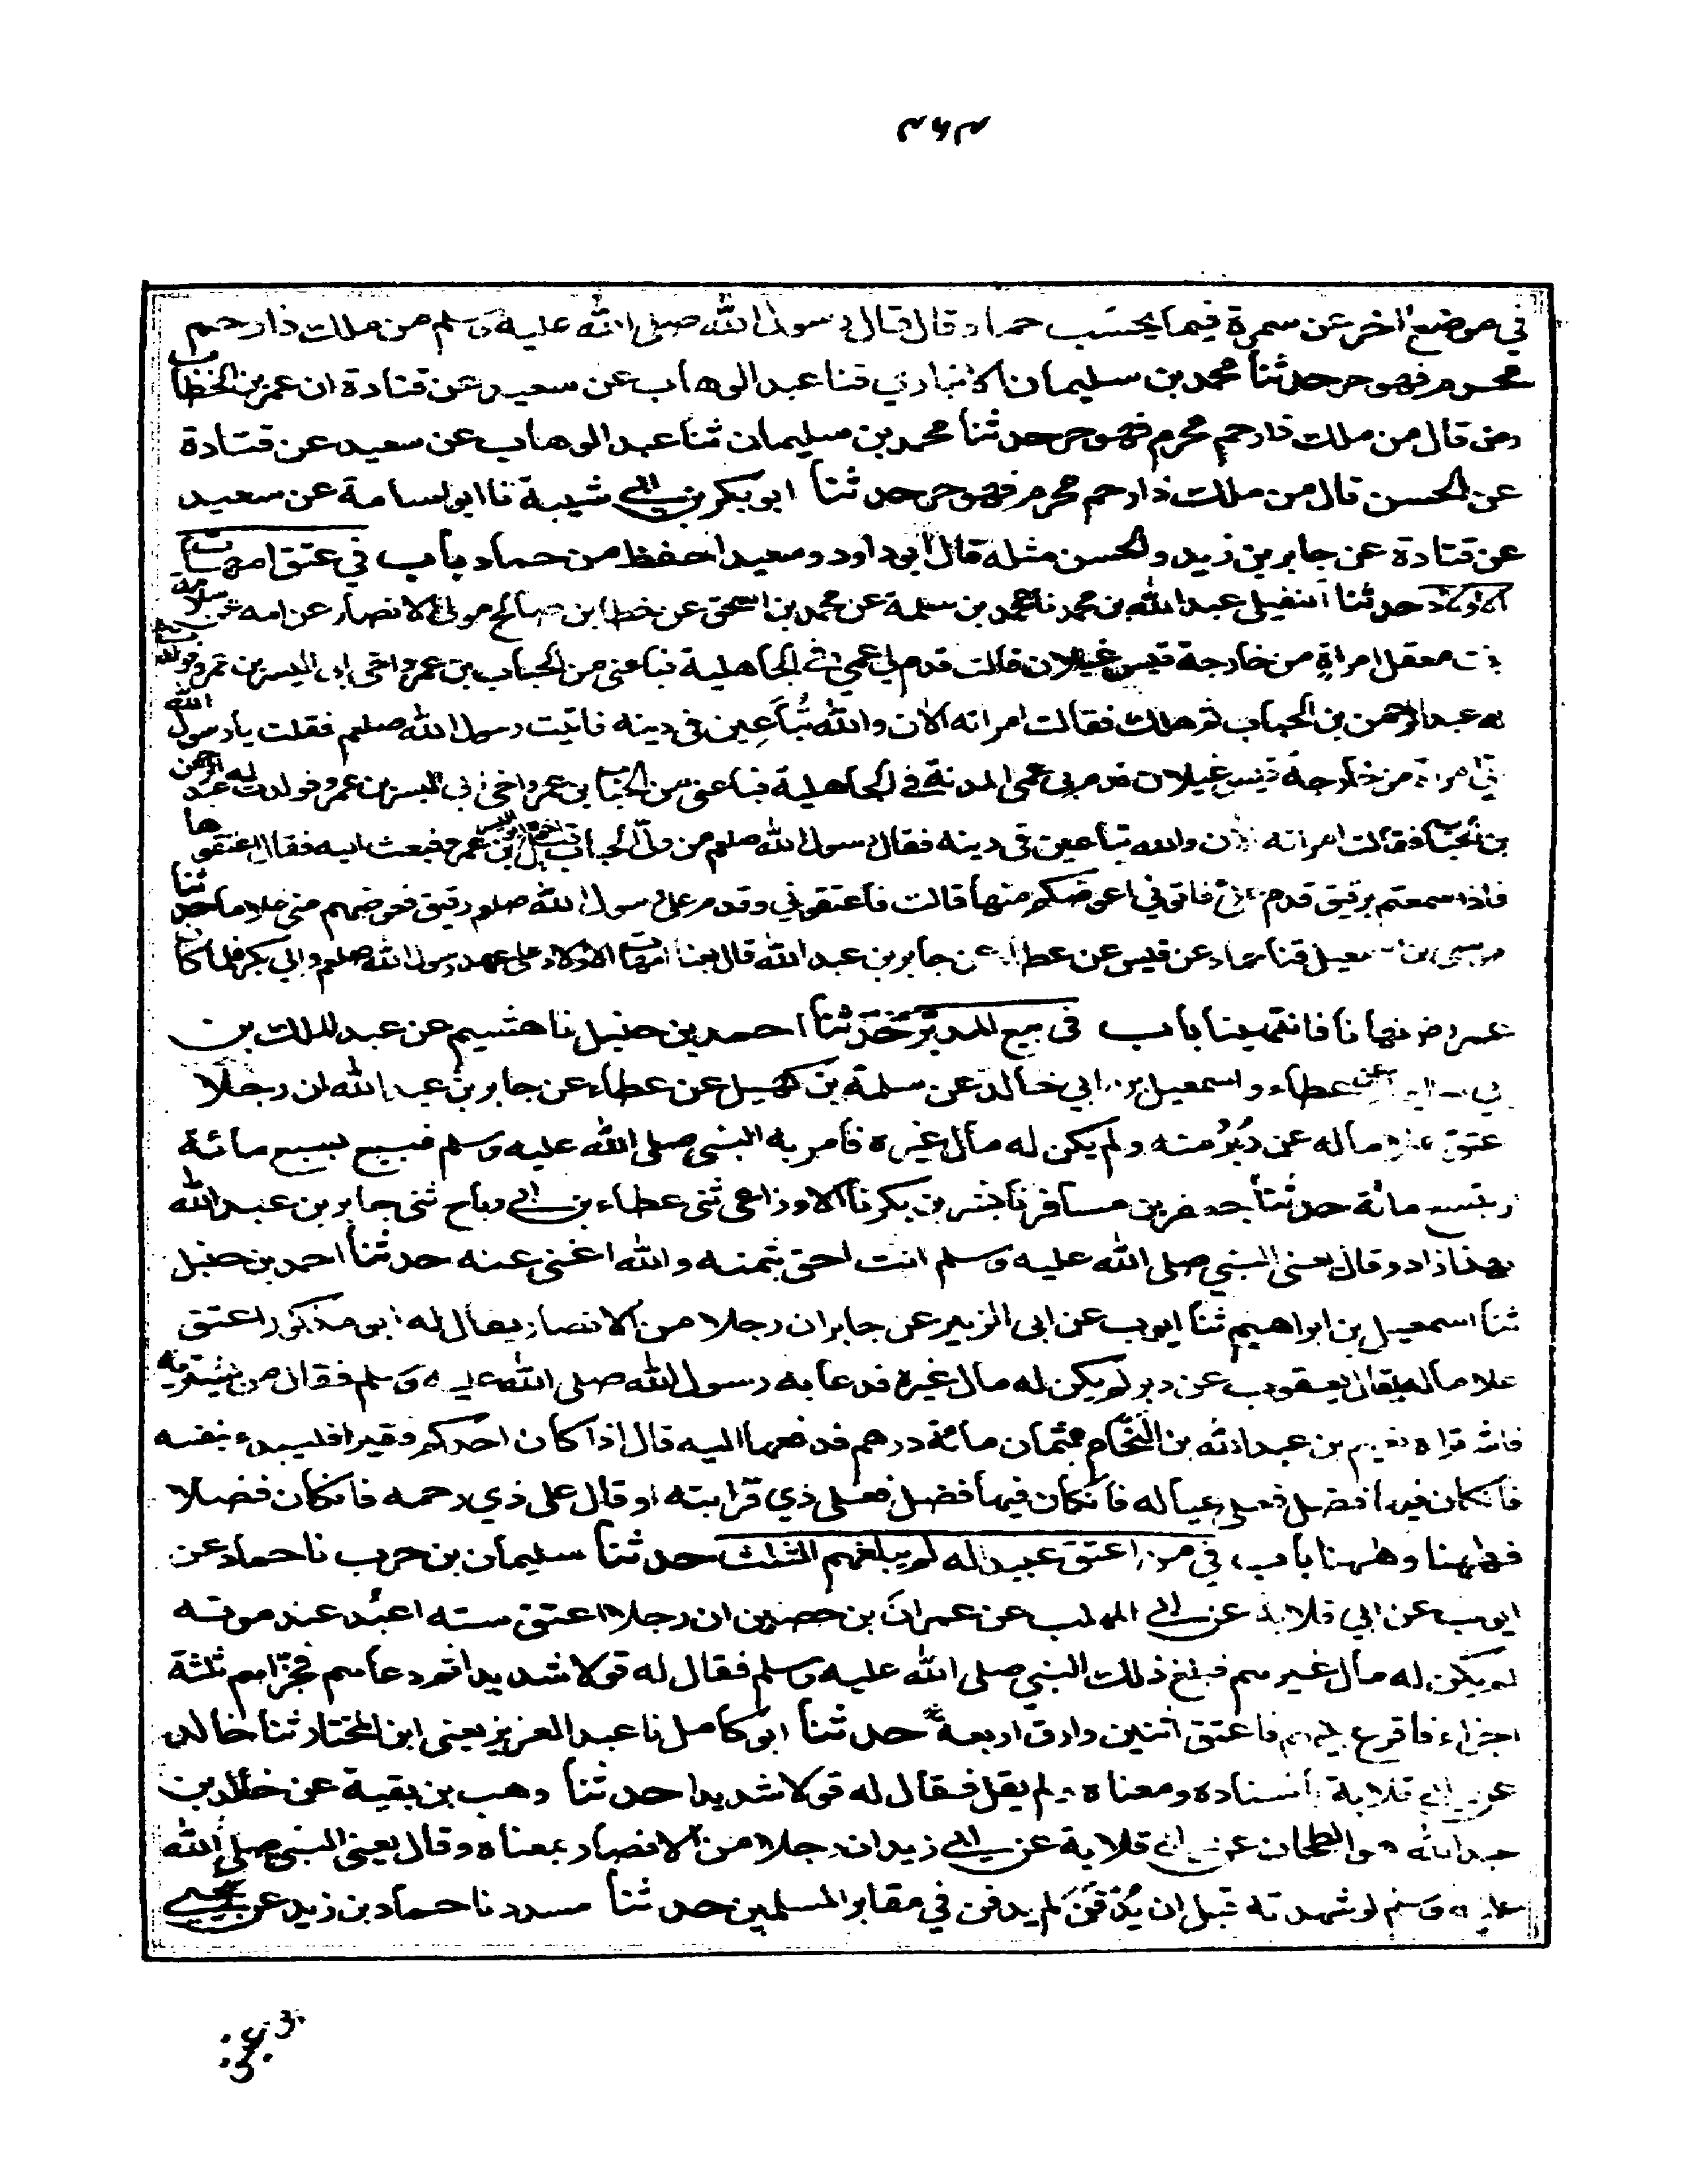 في موضع اخر عن سمرة فيما يحسب حماد وقال قال رسول الله صلى الله عليه وسلم من ملك ذا رحم
محرم فهو حر حدثنا محمد بن سليمان الانباري قثنا عبد الوهاب عن سعيد عن قتادة ان عمر بن الخطاب
رضي قال من ملك ذا رحم محرم فهو حر حدثنا محمد بن سليمان ثنا عبد الوهاب عن سعيد عن قتادة
عن الحسن قال من ملك ذا رحم محرم فهو حر حدثنا ابو بكر بن ابي شيبة نا ابو اسامة عن سعيد
عن قتادة عن جابر بن زيد والحسن مثله قال ابو داود وسعيد احفظ من حماد باب في عتق امهات
الاولاد حدثنا النفيلي عبد الله بن محمد نا محمد بن سلمة عن محمد بن اسحق عن خطاب بن صالح مولى الانصار عن امه سلامة
بنت معقل امراة من خارجة قيس غيلان قالت قدم بي عمي في الجاهلية فباعني من الحباب بن عمرو اخي ابي اليسر بن عمرو فولدت
له عبد الرحمن بن الحباب ثم هلك فقالت امراته الان والله تباعين في دينه فاتيت رسول الله صلعم فقلت يا رسول الله
اني امراة من خارجة قيس غيلان قدم بي عمي المدينة في الجاهلية فباعني من الحباب بن عمرو اخي ابي اليسر بن عمرو فولدت له عبد الرحمن
بن الحباب فقالت امراته الان والله تباعين في دينه فقال رسول الله صلعم من ولي الحباب قيل اخوه ابو اليسر بن عمرو فبعث اليه فقال اعتقوها
فاذا سمعتم برقيق قدم علي فاتوني اعوضكم منها قالت فاعتقوني وقدم على رسول الله صلعم رقيق فعوضهم مني غلاما حدثنا
موسى بن اسمعيل قثنا حماد عن قيس عن عطاء عن جابر بن عبد الله قال بعنا امهات الاولاد على عهد رسول الله صلعم وابي بكر فلما كان
عمر رض نهانا فانتهينا باب في بيع المدبر حدثنا احمد بن حنبل نا هشيم عن عبد الملك بن
ابي سليمان عن عطاء واسمعيل بن ابي خالد عن سلمة بن كهيل عن عطاء عن جابر بن عبد الله ان رجلا
عتق غلاما له عن دبر منه ولم يكن له مال غيره فامر به النبي صلى الله عليه وسلم فبيع بسبع مائة
او بتسع مائة حدثنا جعفر بن مسافر نا بشر بن بكر نا الاوزاعي ثني عطاء بن ابي رباح ثني جابر بن عبد الله
بهذا زاد وقال يعني النبي صلى الله عليه وسلم انت احق بثمنه والله اغنى عنه حدثنا احمد بن حنبل
ثنا اسمعيل بن ابراهيم ثنا ايوب عن ابي الزبير عن جابر ان رجلا من الانصار يقال له ابو مذكور اعتق
غلاما له يقال يعقوب عن دبر لم يكن له مال غيره فدعا به رسول الله صلى الله عليه وسلم فقال من يشتريه
فاشتراه نعيم بن عبد الله بن النحام بثمان مائة درهم فدفعها اليه قال اذا كان احدكم فقيرا فليبدء بنفسه
فان كان فيها فضل فعلى عياله فان كان فيها فضل فعلى ذي قرابته او قال على ذي رحمه فان كان فضلا
فههنا وههنا باب في من اعتق عبيدا له لم يبلغهم الثلث حدثنا سليمان بن حرب نا حماد عن
ايوب عن ابي قلابة عن ابي المهلب عن عمران بن حصين ان رجلا اعتق ستة اعبد عند موته
لم يكن له مال غيرهم فبلغ ذلك النبي صلى الله عليه وسلم فقال له قولا شديدا ثم دعاهم فجزاهم ثلثة
اجزاء فاقرع بينهم فاعتق اثنين وارق اربعة حدثنا ابو كامل نا عبد العزيز يعني ابن المختار ثنا خالد
عن ابي قلابة باسناده ومعناه ولم يقل فقال له قولا شديدا حدثنا وهب بن بقية عن خالد بن
عبد الله هو الطحان عن ابي قلابة عن ابي زيد ان رجلا من الانصار بمعناه وقال يعني النبي صلى الله
عليه وسلم لو شهدته قبل ان يدفن لم يدفن في مقابر المسلمين حدثنا مسدد نا حماد بن زيد عن يحيى